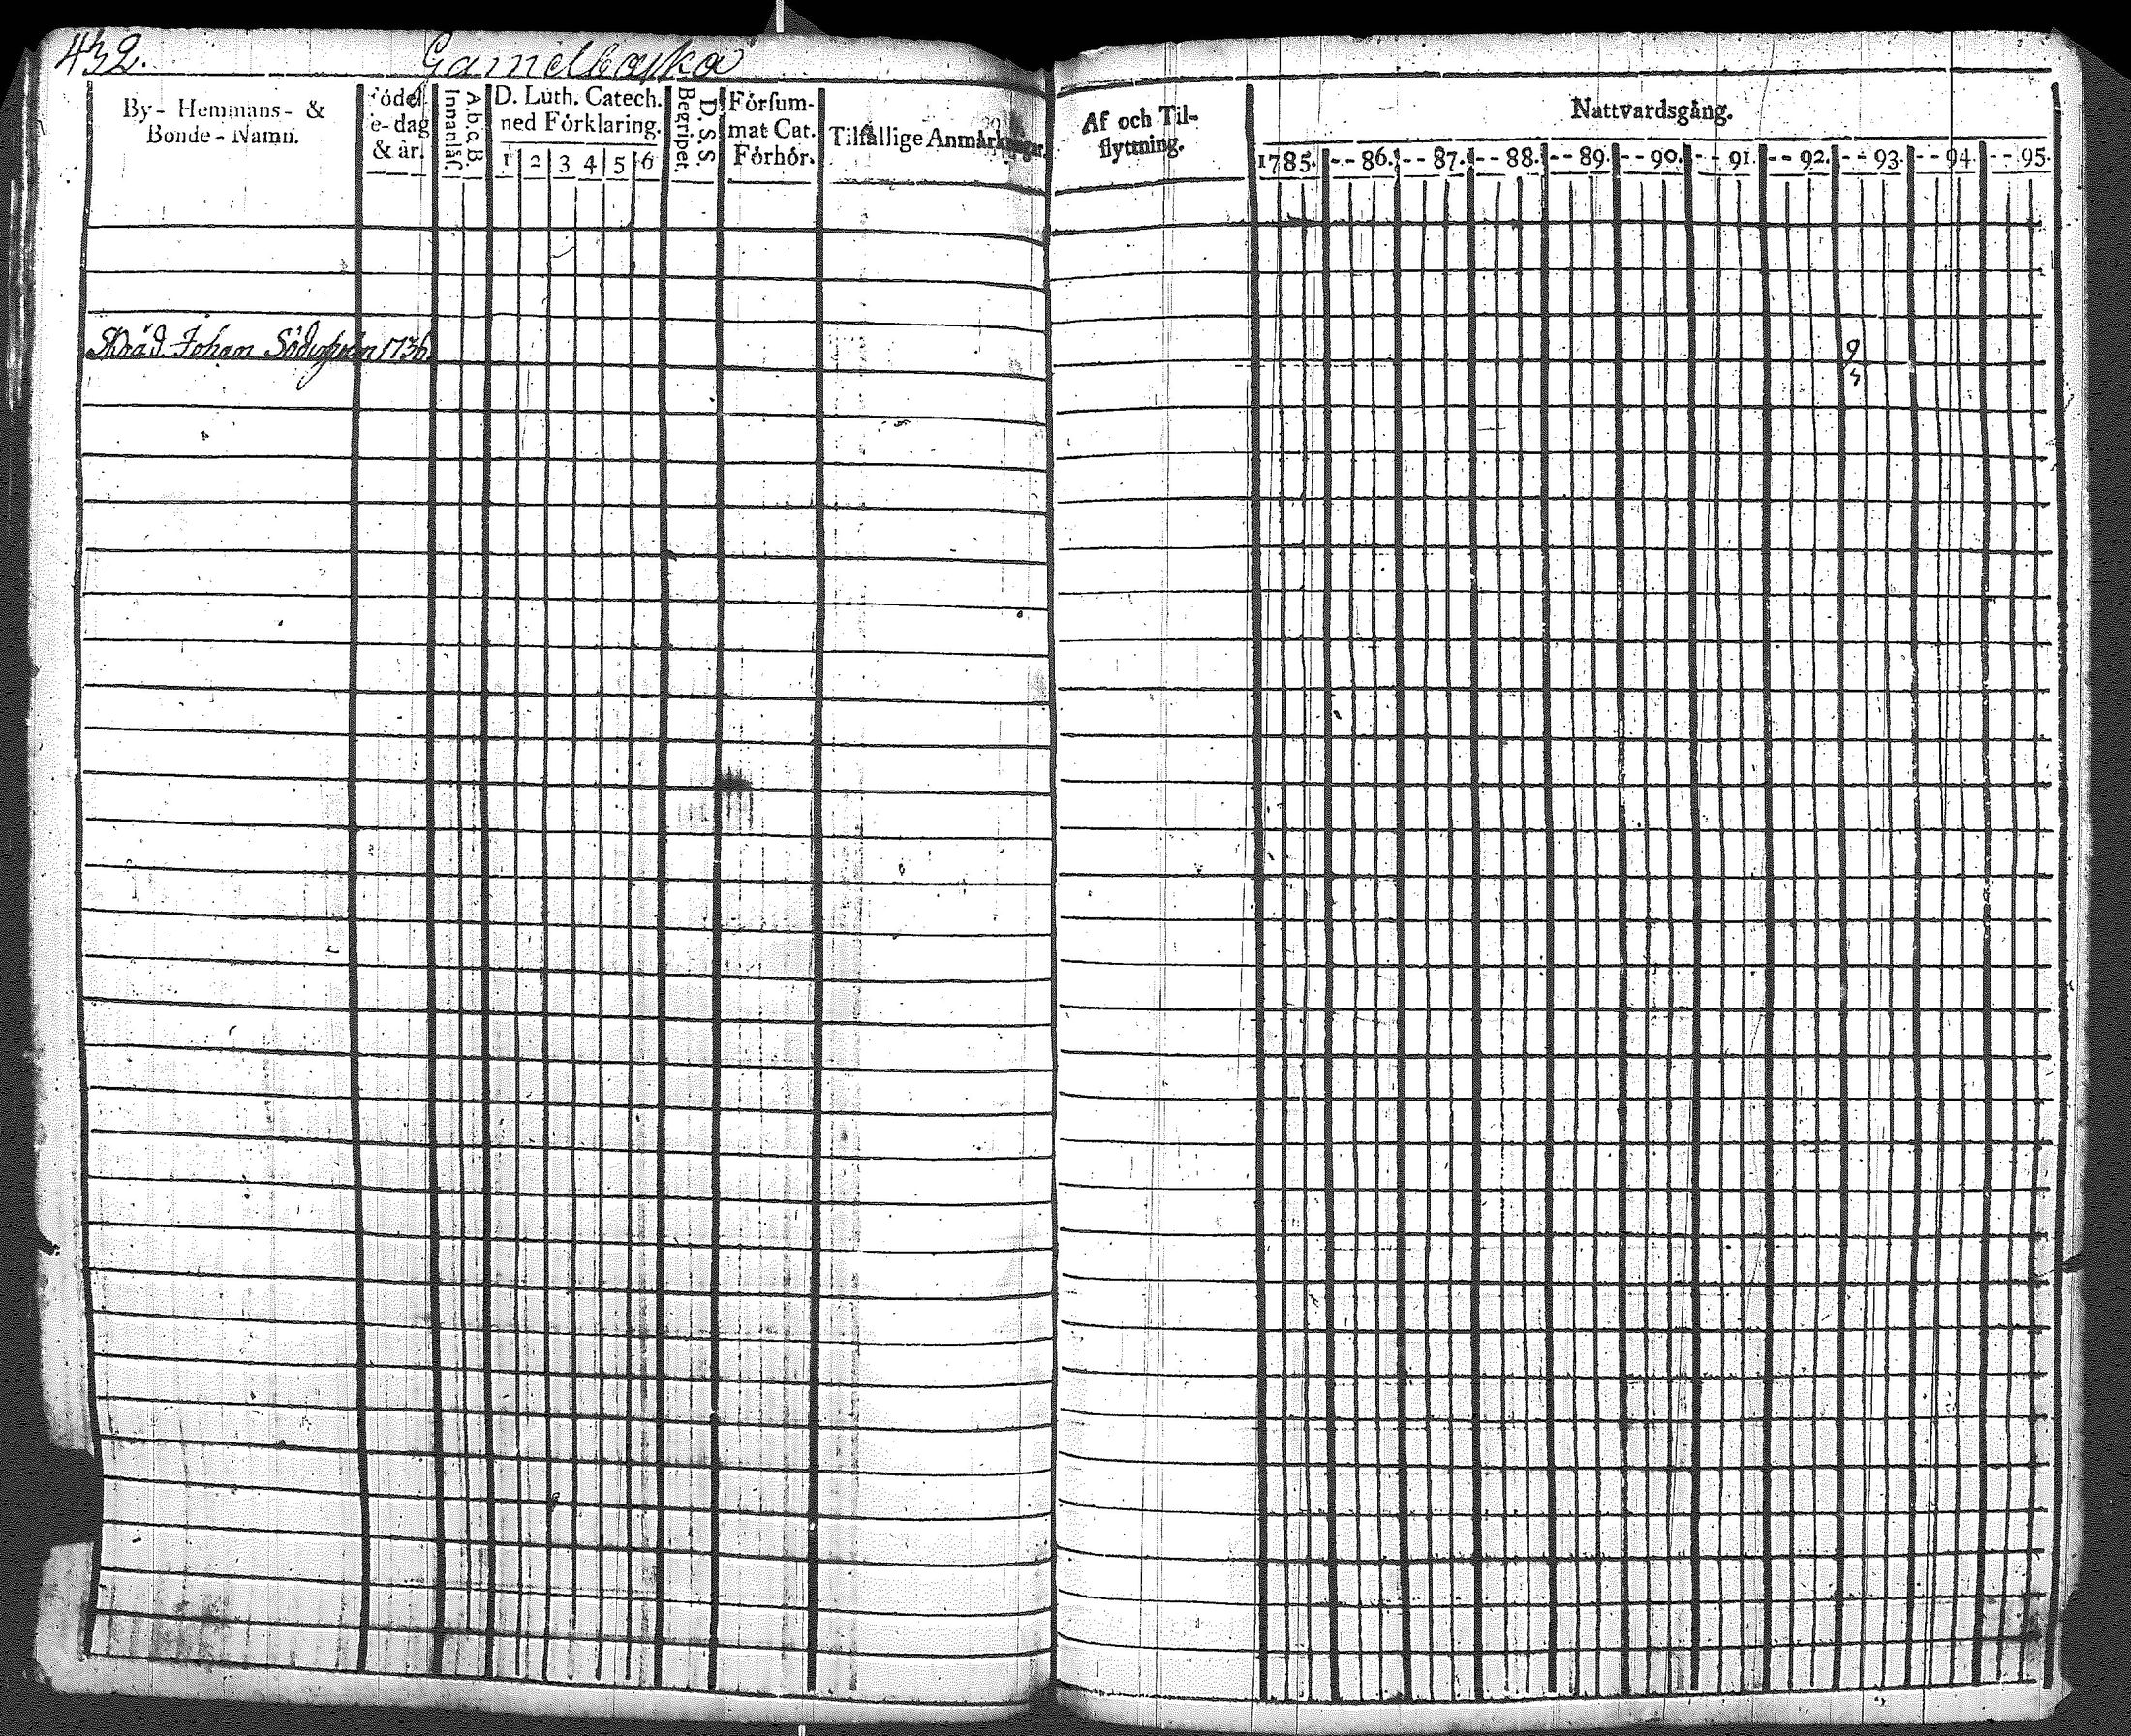 432. Gamelbacka
By- Hemmans- &
Bonde- Namn.
Födel-
e-dag
& år.
A. b. c. B.
Innanläs.
D. Luth. Catech.
med Förklaring.
1 2 3 4 5 6
D. S. S.
Begripet.
Försum-
mat Cat.
Förhör.
Tilfällige Anmärkningar.
Af och Til-
flyttning.
Nattvardsgång.
1785. -- 86. -- 87. -- 88. -- 89. -- 90. -- 91. -- 92. -- 93. -- 94. -- 95.
Skräd. Johan 1736
9